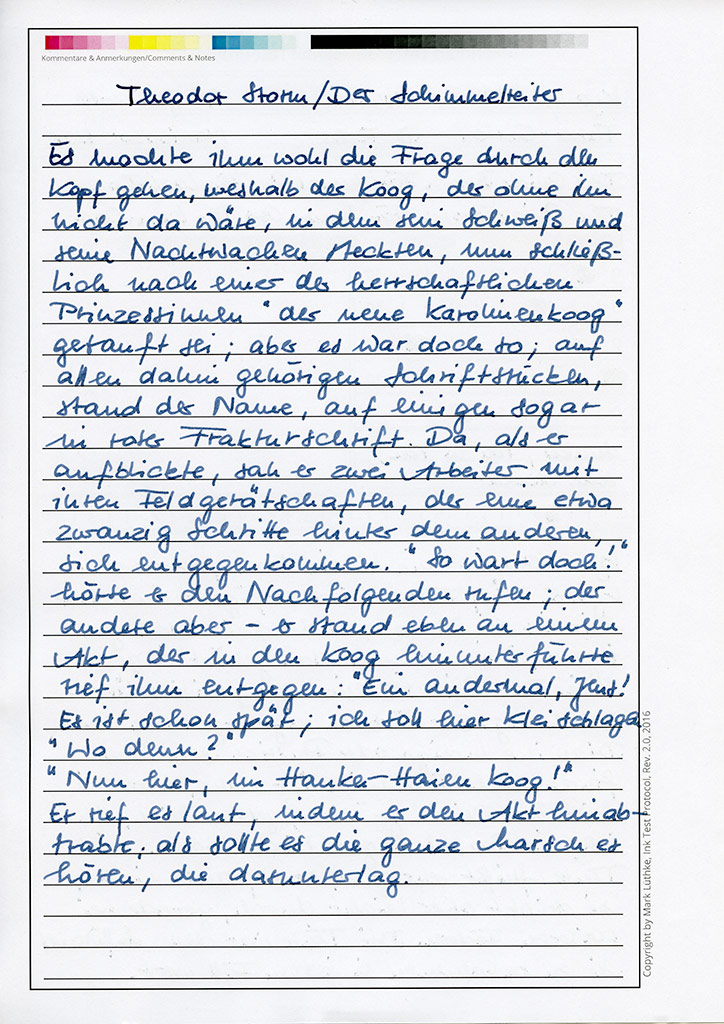 Kommentare & Anmerkungen/Comments & Notes
Theodor Storm/Der Schimmelreiter
Es mochte ihm wohl die Frage durch den
Kopf gehen, weshalb der Koog, der ohne ihn
nicht da wäre, in dem sein Schweiß und
seine Nachtwachen steckten, nun schließ-
lich nach einer der herrschaftlichen
Prinzessinnen "der neue Karolinenkoog"
getauft sei; aber es war doch so; auf
allen dahin gehörigen Schriftstücken,
stand der Name, auf einigen sogar
in roter Frakturschrift. Da, als er
aufblickte, sah er zwei Arbeiter mit
ihren Feldgerätschaften, der eine etwa
zwanzig Schritte hinter dem anderen,
sich entgegenkommen. "So wart doch!"
hörte er den Nachfolgenden rufen; der
andere aber – er stand eben an einem
Akt, der in den Koog hinunterführte
rief ihm entgegen: "Ein andermal, Jens!
Es ist schon spät; ich soll hier Klei schlagen
"Wo denn?"
"Nun hier, im Hauke-Haien Koog!"
Er rief es laut, indem er den Akt hinab-
trabte, als sollte es die ganze Marsch es
hören, die darunterlag.
Copyright by Mark Luthke, Ink Test Protocol, Rev. 2.0, 2016